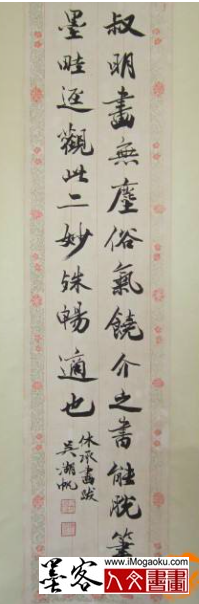 叔明畫無塵俗氣饒介之書能脫筆
墨畦逕觀此二妙殊暢適也
休承畫跋
吳湖帆
www.iMogaoku.com
墨客 人文書畫